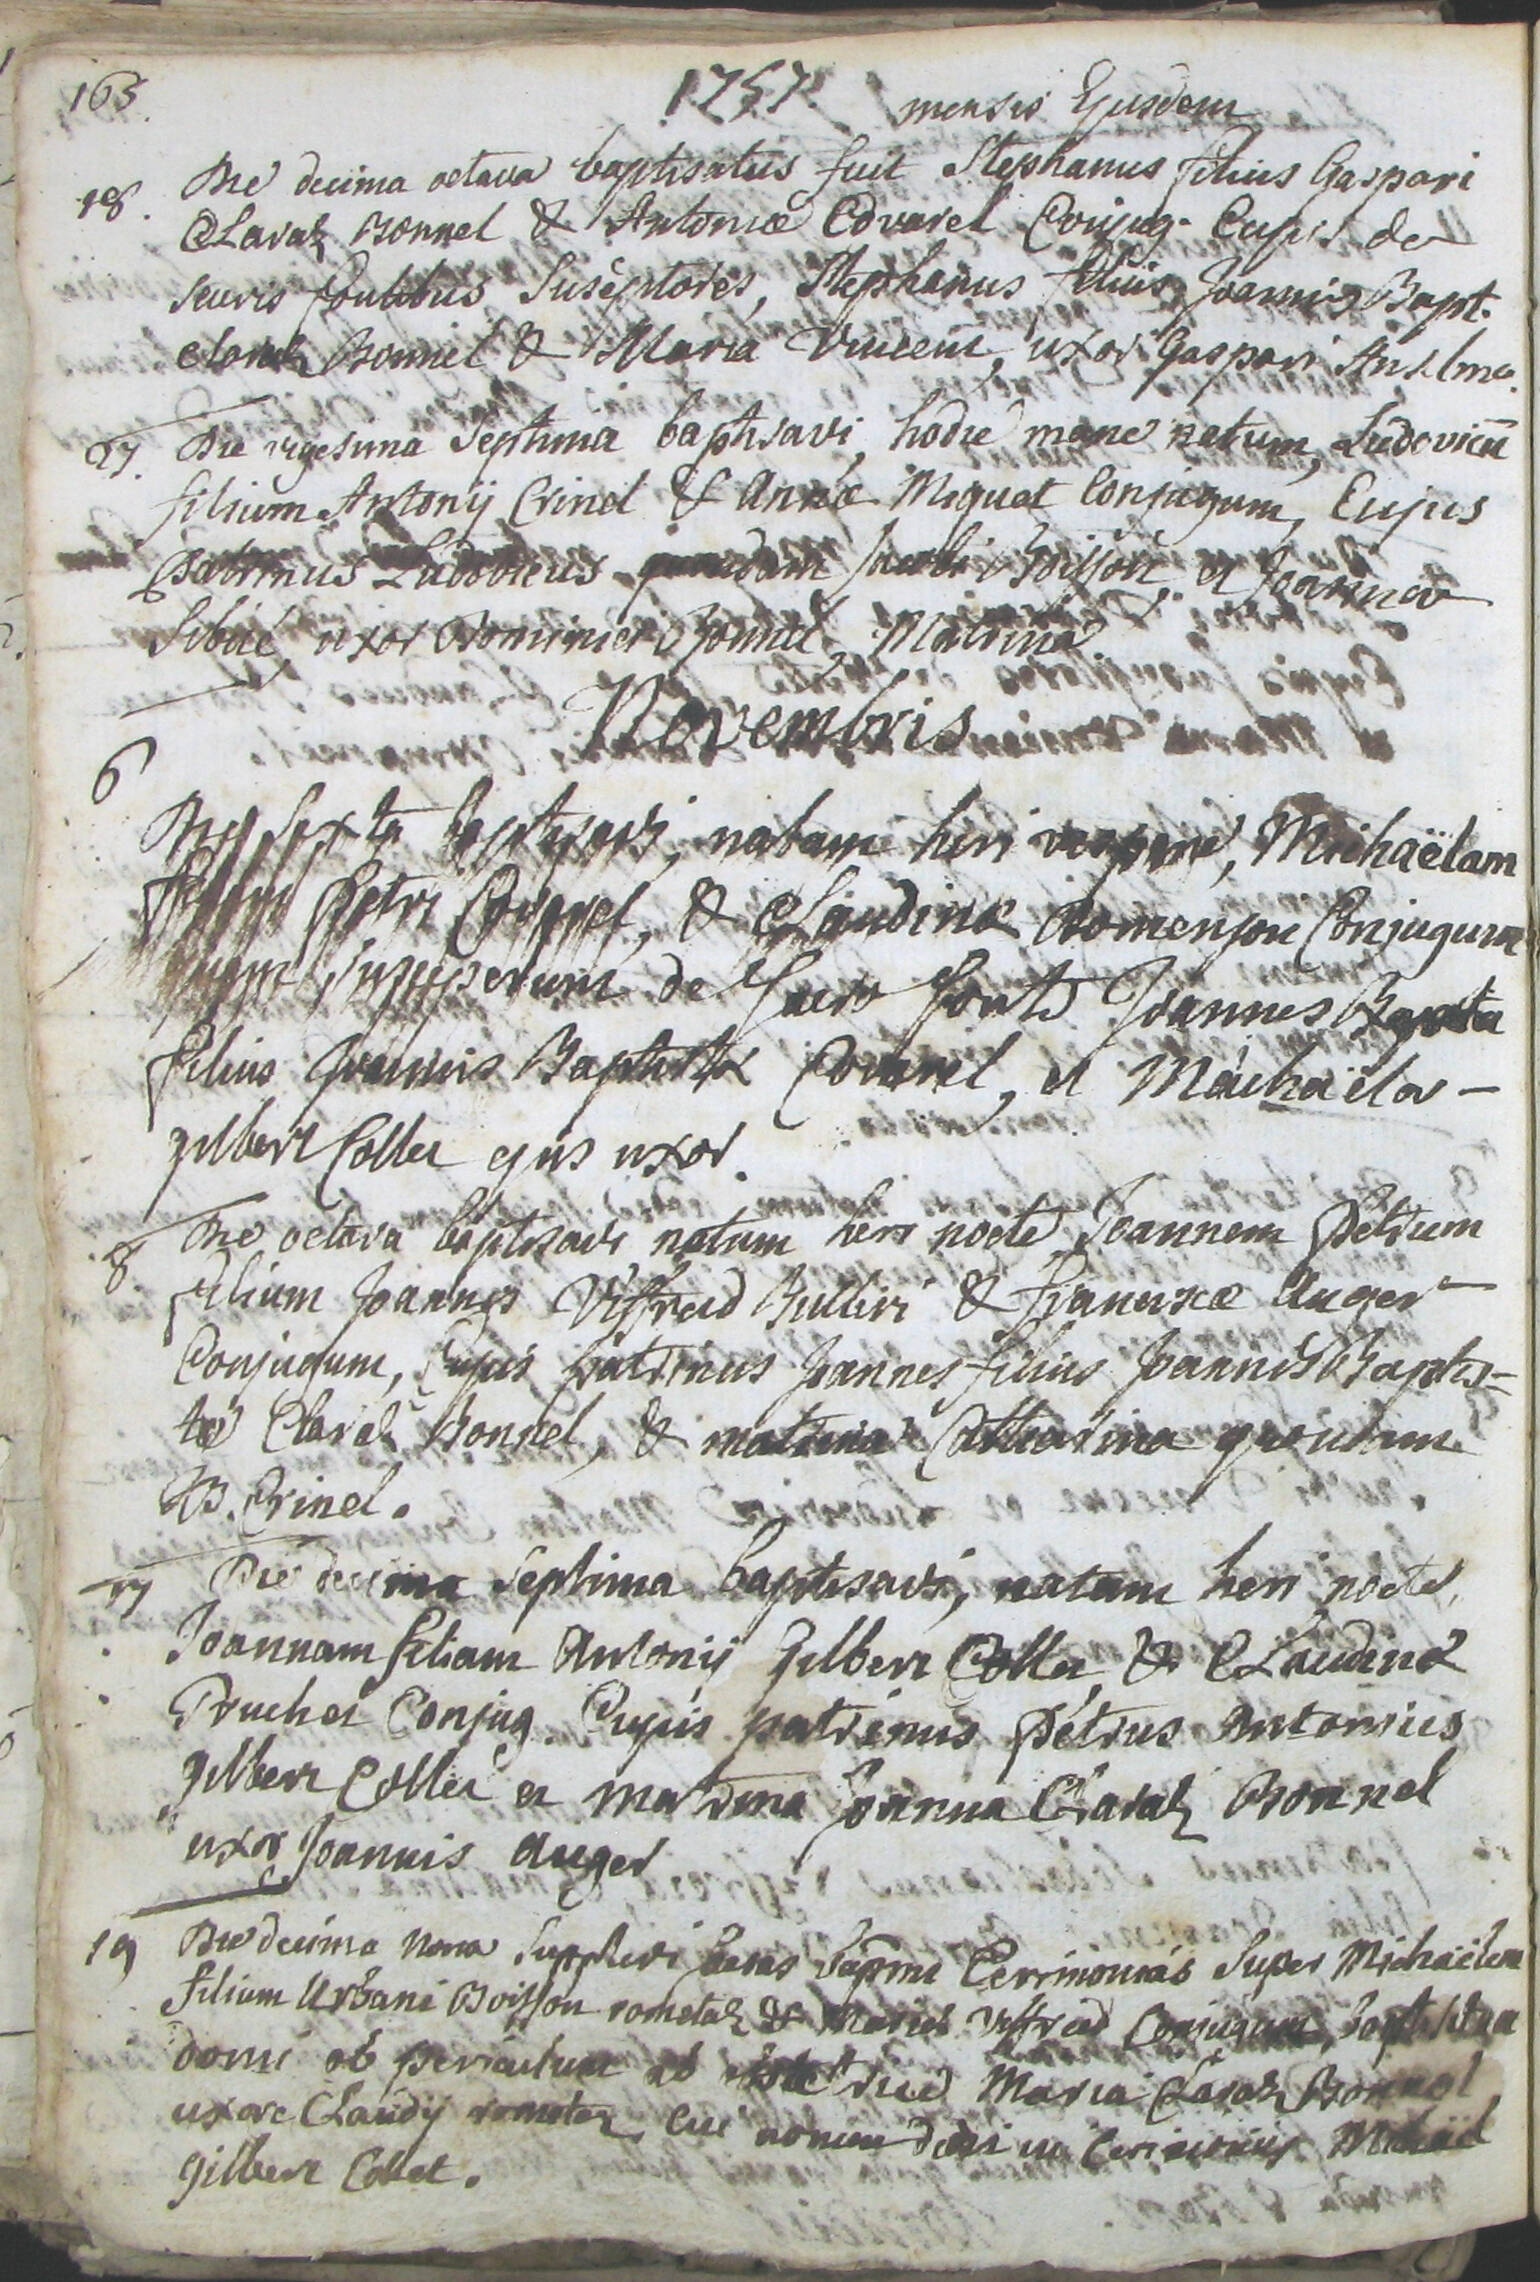 163.
1757. mensis Ejusdem
18. Die decima octava baptisatus fuit Stephanus filius Gaspari
Claraz Bonnel & Antoniæ Covarel Conjug. Cujus de
sacris fontibus Suséptores, Stephanus filius Joannis Bapt.
claraz Bonnel & Maria Vincent, uxor Gaspari Anselme.
27. Die vigesima Septima baptisavi, hodie mane natum, Ludovicū
filium Antonij Crinel & Annæ Miquet Conjugum, Cujus
Patrinus Ludovicus quondam Jacobi Boisson, et Joanna
Sibué uxor Dominici Bonnel, Matrina.
Novembris
6 Die Sexta baptisavi, natam heri vespere, Michaëlam
filiam Petri Covarel, & Claudinæ Domenjon Conjugum
quam susceperunt de Sacro fonte Joannes Bapsta
filius Joannis Baptistæ Covarel, et Michaëla -
gilbert Collet ejus uxor.
8 Die octava baptisavi natum heri nocte Joannem Petrum
filium Joannis Viffred Bullieri & Franciscæ Auger
Conjugum, Cujus patrinus Joannes filius Joannis Baptis=
tæ Claraz Bonnel, & matrina Catharina quondam
JB. Crinel.
17 Die decima Septima baptisavi, natam heri nocte,
Joannam filiam Antonij gilbert Collet, & Claudinæ
Truchet Conjug. Cujus patrinus Pétrus Antonius
gilbert Collet et matrina Joanna Claraz Bonnel
uxor Joannis Auger
19 Die decima nona Supplevi Sacras bapmi Cerimonias Super Michaëlem
filium Urbani Boisson rometaz & Mariæ Viffred Conjugum, baptisatum
domi ob periculum ab obstetrice Maria Claraz Bonnel
uxore Claudij rometaz, cui nomen dedi in Cerimoniis Michaël
gilbert Collet.